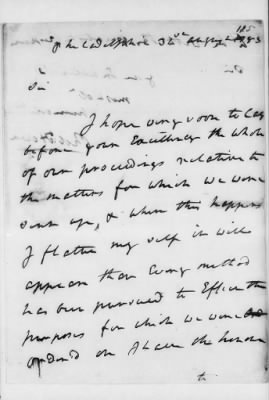 185
Philadelphia 3d August 1783
Sir
I hope very soon to lay
before your Excellency the whole
of our proceedings relative to
the matters for which we were
sent up, & when this happens
I flatter my self it will
appear that Every method
has been pursued to Effect the
purposes for which we were
on I have the honor
to